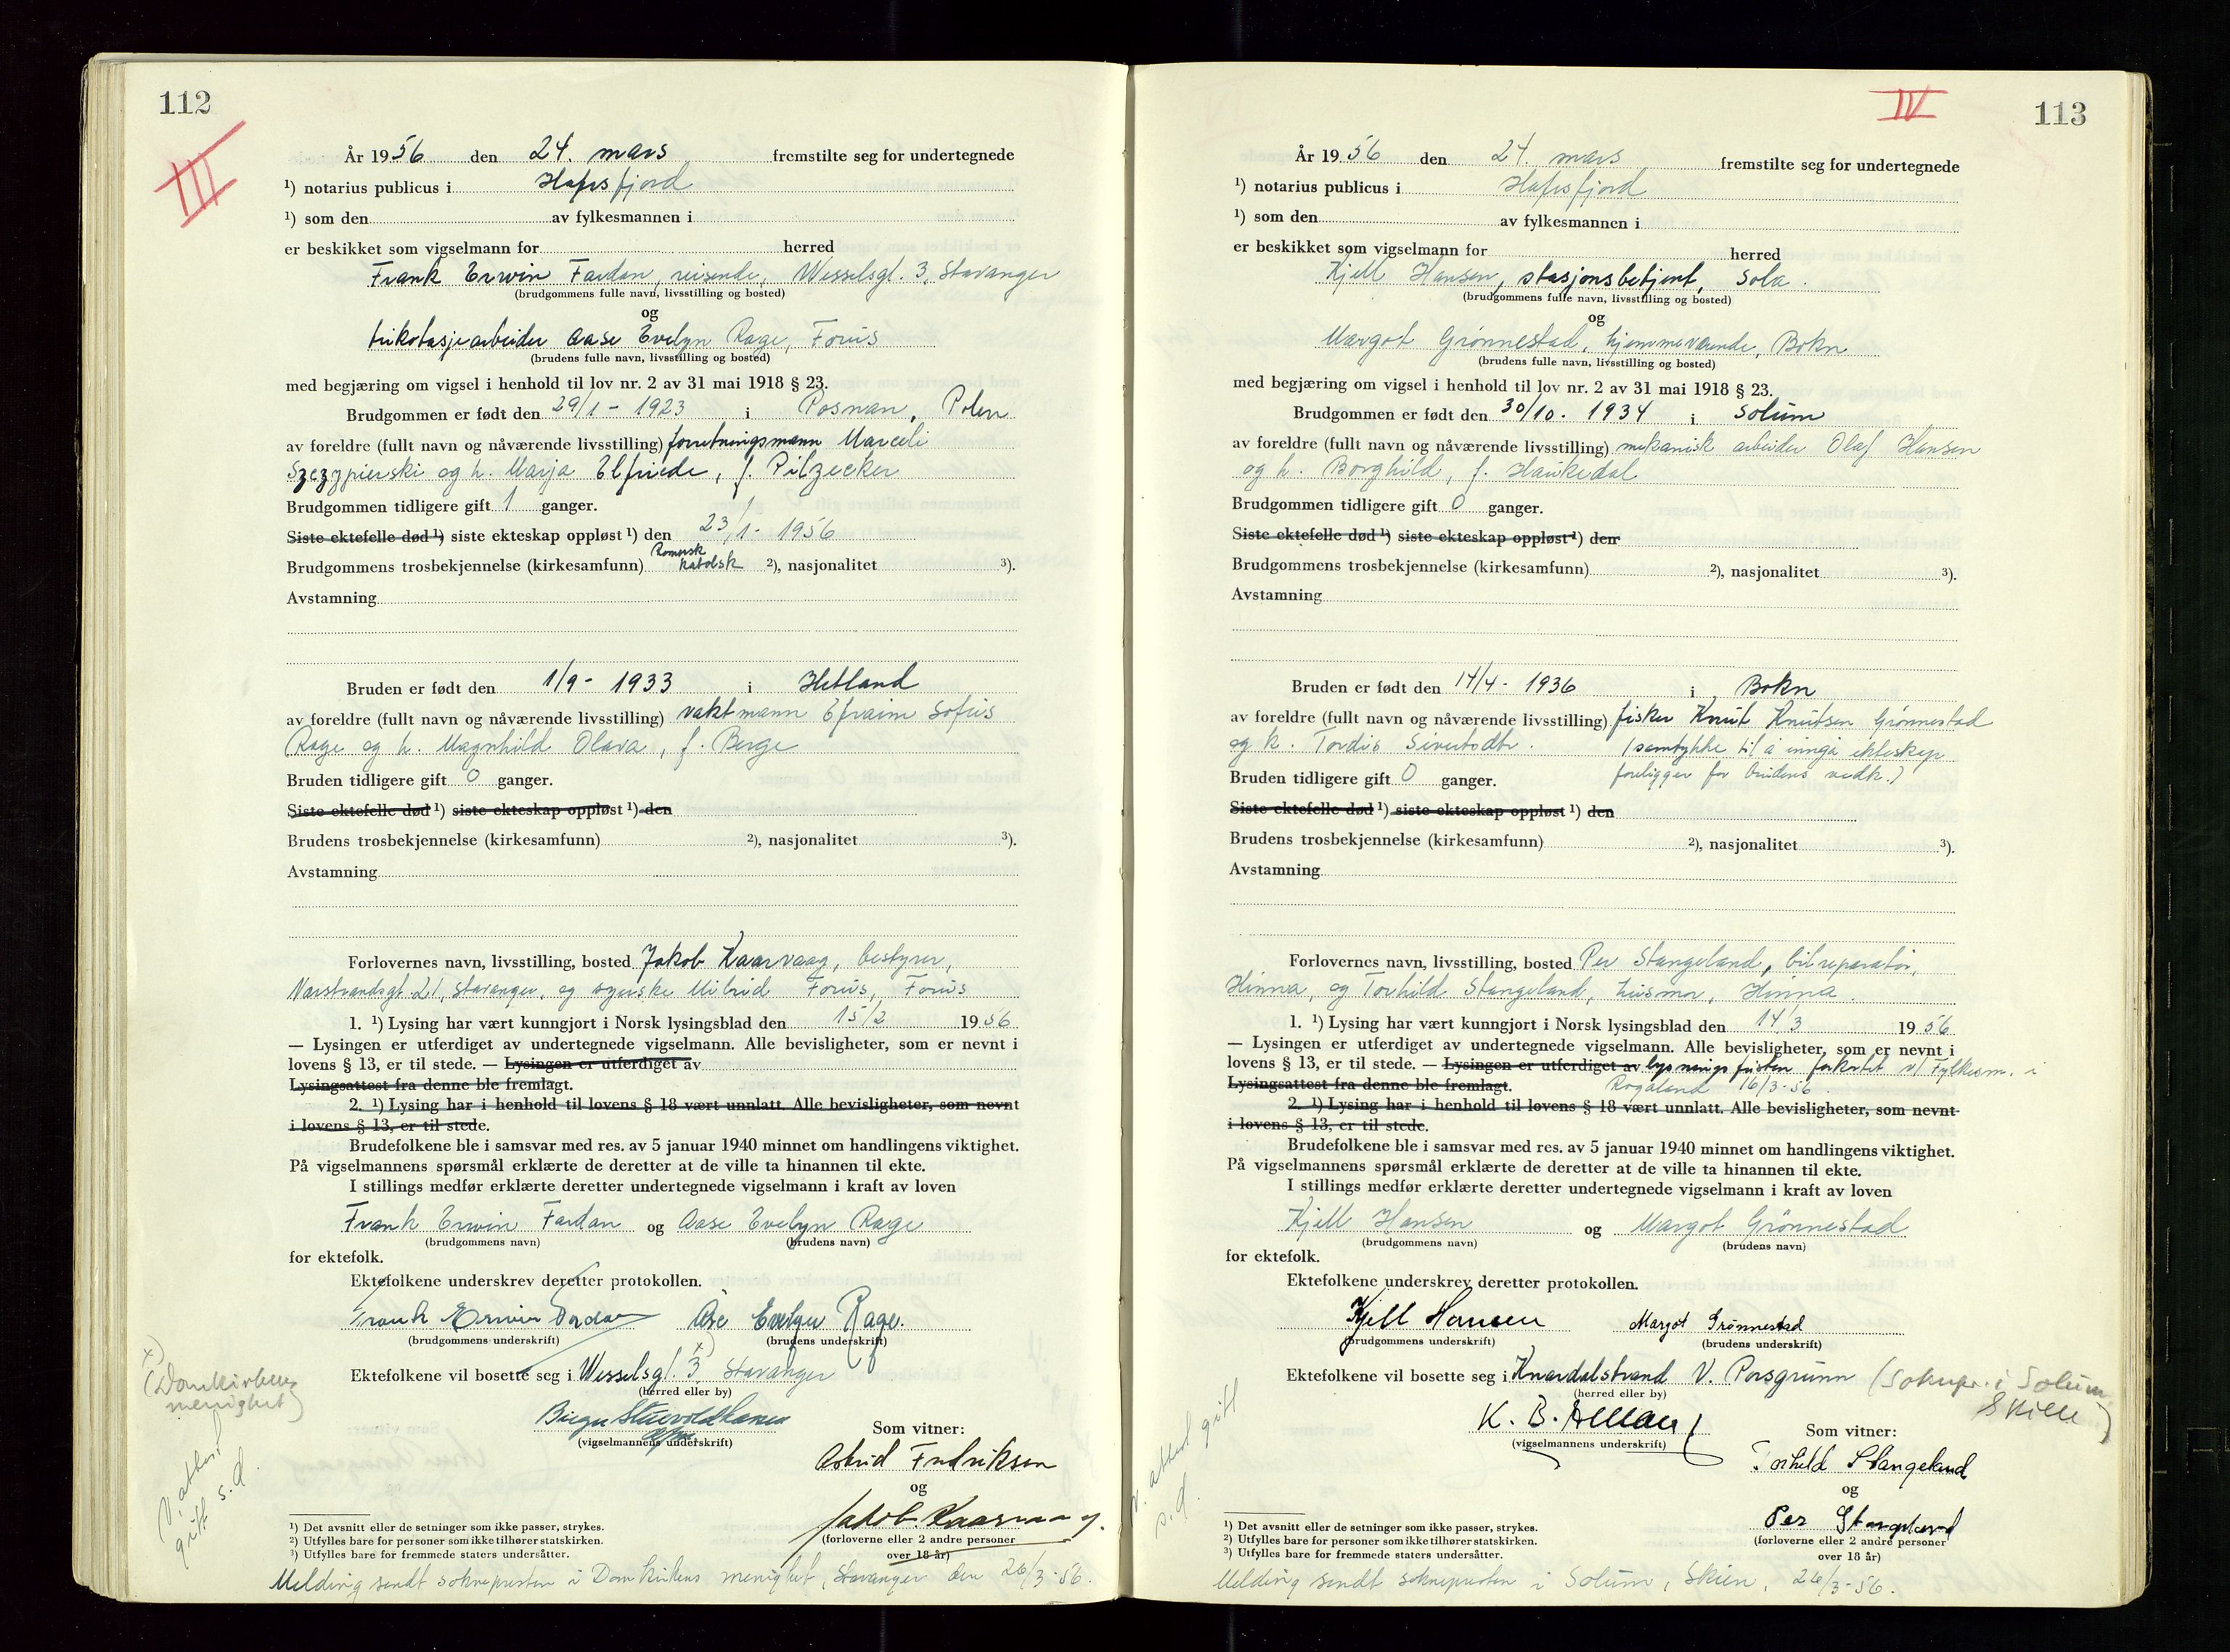 112
III
År 1956 den 24. mars fremstilte seg for undertegnede
¹) notarius publicus i Hafrsfjord
¹) som den av fylkesmannen i
er beskikket som vigselmann for herred
Frank Erwin Fardan, reisende, Wesselsgt. 3, Stavanger
(brudgommens fulle navn, livsstilling og bosted)
og
trikotasjearbeider Aase Evelyn Rage, Forus
(brudens fulle navn, livsstilling og bosted)
med begjæring om vigsel i henhold til lov nr. 2 av 31 mai 1918 § 23.
Brudgommen er født den 29/1 - 1923 i Posnan, Polen
av foreldre (fullt navn og nåværende livsstilling) forretningsmann Marceli
Szczypierski og h. Marja Elfriede, f. Pilzecker
Brudgommen tidligere gift 1 ganger.
Siste ektefelle død ¹) siste ekteskap oppløst ¹) den 23/1 - 1956
Brudgommens trosbekjennelse (kirkesamfunn) Romersk katolsk ²), nasjonalitet ³).
Avstamning
Bruden er født den 1/9 - 1933 i Hetland
av foreldre (fullt navn og nåværende livsstilling) vaktmann Efraim Sofus
Rage og h. Magnhild Olava, f. Berge
Bruden tidligere gift 0 ganger.
Siste ektefelle død ¹) siste ekteskap oppløst ¹) den
Brudens trosbekjennelse (kirkesamfunn) ²), nasjonalitet ³).
Avstamning
Forlovernes navn, livsstilling, bosted Jakob Kaarvaag, bestyrer,
Narstrandsgt. 21, Stavanger, og syerske Milrid Forus, Forus
1. ¹) Lysing har vært kunngjort i Norsk lysingsblad den 15/2 1956
— Lysingen er utferdiget av undertegnede vigselmann. Alle bevisligheter, som er nevnt i
lovens § 13, er til stede. — Lysingen er utferdiget av
Lysingsattest fra denne ble fremlagt.
2. ¹) Lysing har i henhold til lovens § 18 vært unnlatt. Alle bevisligheter, som nevnt
i lovens § 13, er til stede.
Brudefolkene ble i samsvar med res. av 5 januar 1940 minnet om handlingens viktighet.
På vigselmannens spørsmål erklærte de deretter at de ville ta hinannen til ekte.
I stillings medfør erklærte deretter undertegnede vigselmann i kraft av loven
Frank Erwin Fardan og Aase Evelyn Rage
(brudgommens navn) (brudens navn)
for ektefolk.
Ektefolkene underskrev deretter protokollen.
Frank Erwin Fardan Åse Evelyn Rage.
(brudgommens underskrift) (brudens underskrift)
Ektefolkene vil bosette seg i Wesselsgt. 3 x) Stavanger
(herred eller by)
x)
(Domkirkens
menighet)
(vigselmannens underskrift)
Som vitner:
Astrid Fredriksen
og
Jakob Kaarvaag.
(forloverne eller 2 andre personer
over 18 år)
V. attest
gitt s.d.
¹) Det avsnitt eller de setninger som ikke passer, strykes.
²) Utfylles bare for personer som ikke tilhører statskirken.
³) Utfylles bare for fremmede staters undersåtter.
Melding sendt soknepresten i Domkirkens menighet, Stavanger den 26/3-56.
IV
113
År 1956 den 24. mars fremstilte seg for undertegnede
¹) notarius publicus i Hafrsfjord
¹) som den av fylkesmannen i
er beskikket som vigselmann for herred
Kjell Hansen, stasjonsbetjent, Sola.
(brudgommens fulle navn, livsstilling og bosted)
og
Margot Grønnestad, hjemmeværende, Bokn
(brudens fulle navn, livsstilling og bosted)
med begjæring om vigsel i henhold til lov nr. 2 av 31 mai 1918 § 23.
Brudgommen er født den 30/10. 1934 i Solum
av foreldre (fullt navn og nåværende livsstilling) mekanisk arbeider Olaf Hansen
og h. Borghild, f. Haukedal
Brudgommen tidligere gift 0 ganger.
Siste ektefelle død ¹) siste ekteskap oppløst ¹) den
Brudgommens trosbekjennelse (kirkesamfunn) ²), nasjonalitet ³).
Avstamning
Bruden er født den 14/4 - 1936 i Bokn
av foreldre (fullt navn og nåværende livsstilling) fisker Knut Knutsen Grønnestad
og h. Tordis Sivertsdtr. (samtykke til å inngå ekteskap
Bruden tidligere gift 0 ganger. foreligger for brudens vedk.)
Siste ektefelle død ¹) siste ekteskap oppløst ¹) den
Brudens trosbekjennelse (kirkesamfunn) ²), nasjonalitet ³).
Avstamning
Forlovernes navn, livsstilling, bosted Per Stangeland, bilreparatør,
Hinna, og Torhild Stangeland, husmor, Hinna.
1. ¹) Lysing har vært kunngjort i Norsk lysingsblad den 14/3 1956
— Lysingen er utferdiget av undertegnede vigselmann. Alle bevisligheter, som er nevnt i
lovens § 13, er til stede. — Lysingen er utferdiget av lysningsfristen forkortet v/ Fylkesm. i
Lysingsattest fra denne ble fremlagt. Rogaland 16/3-56.
2. ¹) Lysing har i henhold til lovens § 18 vært unnlatt. Alle bevisligheter, som nevnt
i lovens § 13, er til stede.
Brudefolkene ble i samsvar med res. av 5 januar 1940 minnet om handlingens viktighet.
På vigselmannens spørsmål erklærte de deretter at de ville ta hinannen til ekte.
I stillings medfør erklærte deretter undertegnede vigselmann i kraft av loven
Kjell Hansen og Margot Grönnestad
(brudgommens navn) (brudens navn)
for ektefolk.
Ektefolkene underskrev deretter protokollen.
Kjell Hansen Margot Grønnestad
(brudgommens underskrift) (brudens underskrift)
Ektefolkene vil bosette seg i Knardalstrand V. Porsgrunn (Soknepr. i Solum
(herred eller by) Skien)
K. B.
(vigselmannens underskrift)
Som vitner:
Torhild Stangeland
og
Per Stangeland
(forloverne eller 2 andre personer
over 18 år)
V. attest gitt
s.d.
¹) Det avsnitt eller de setninger som ikke passer, strykes.
²) Utfylles bare for personer som ikke tilhører statskirken.
³) Utfylles bare for fremmede staters undersåtter.
Melding sendt soknepresten i Solum, Skien, 26/3-56.